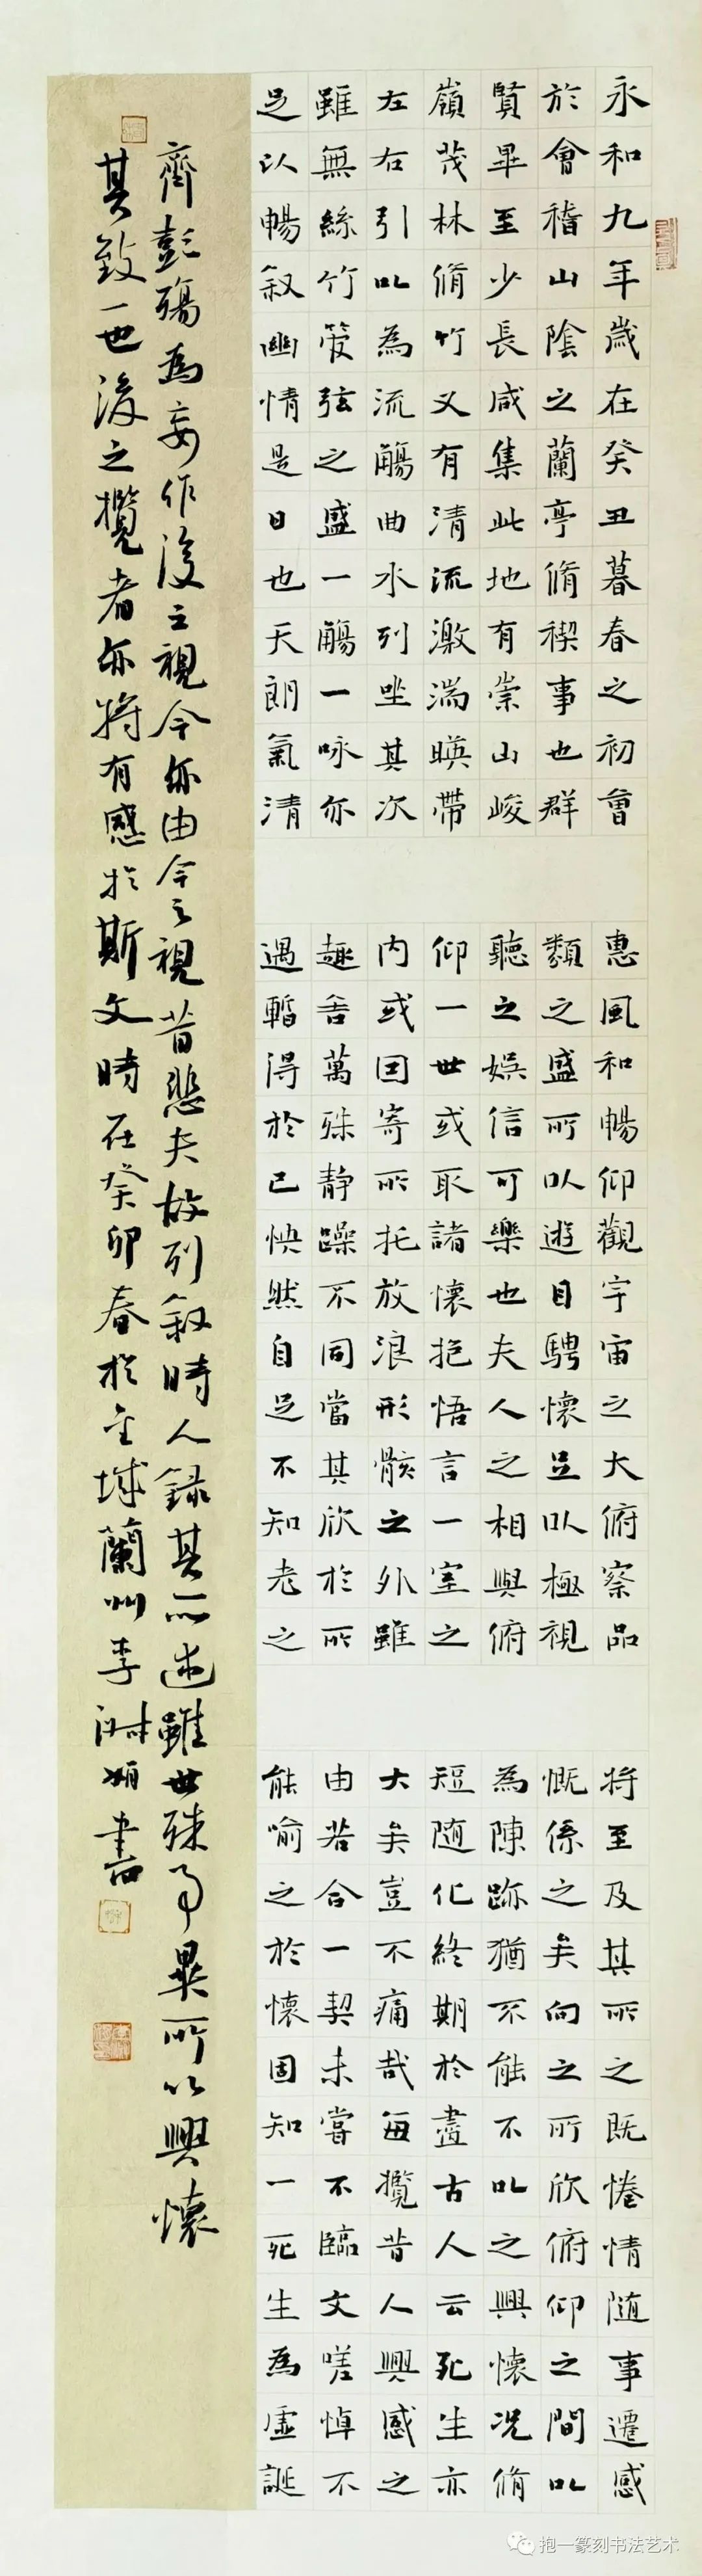 永和九年歲在癸丑暮春之初會
於會稽山陰之蘭亭脩禊事也群
賢畢至少長咸集此地有崇山峻
嶺茂林脩竹又有清流激湍暎帶
左右引以為流觴曲水列坐其次
雖無絲竹管弦之盛一觴一咏亦
足以暢叙幽情是日也天朗氣清
惠風和暢仰觀宇宙之大俯察品
類之盛所以遊目騁懷足以極視
聽之娛信可樂也夫人之相與俯
仰一世或取諸懷抱悟言一室之
内或因寄所托放浪形骸之外雖
趣舍萬殊静躁不同當其欣於所
遇暫得於己怏然自足不知老之
將至及其所之既惓情随事遷感
慨係之矣向之所欣俯仰之間以
為陳跡猶不能不以之興懷況脩
短随化終期於盡古人云死生亦
大矣豈不痛哉每攬昔人興感之
由若合一契未嘗不臨文嗟悼不
能喻之於懷固知一死生為虛誕
齊彭殤為妄作後之視今亦由今之視昔悲夫故列叙時人録其所述雖世殊事異所以興懷
其致一也後之攬者亦將有感於斯文時在癸卯春於金城蘭州李淑娟書
抱一篆刻书法艺术